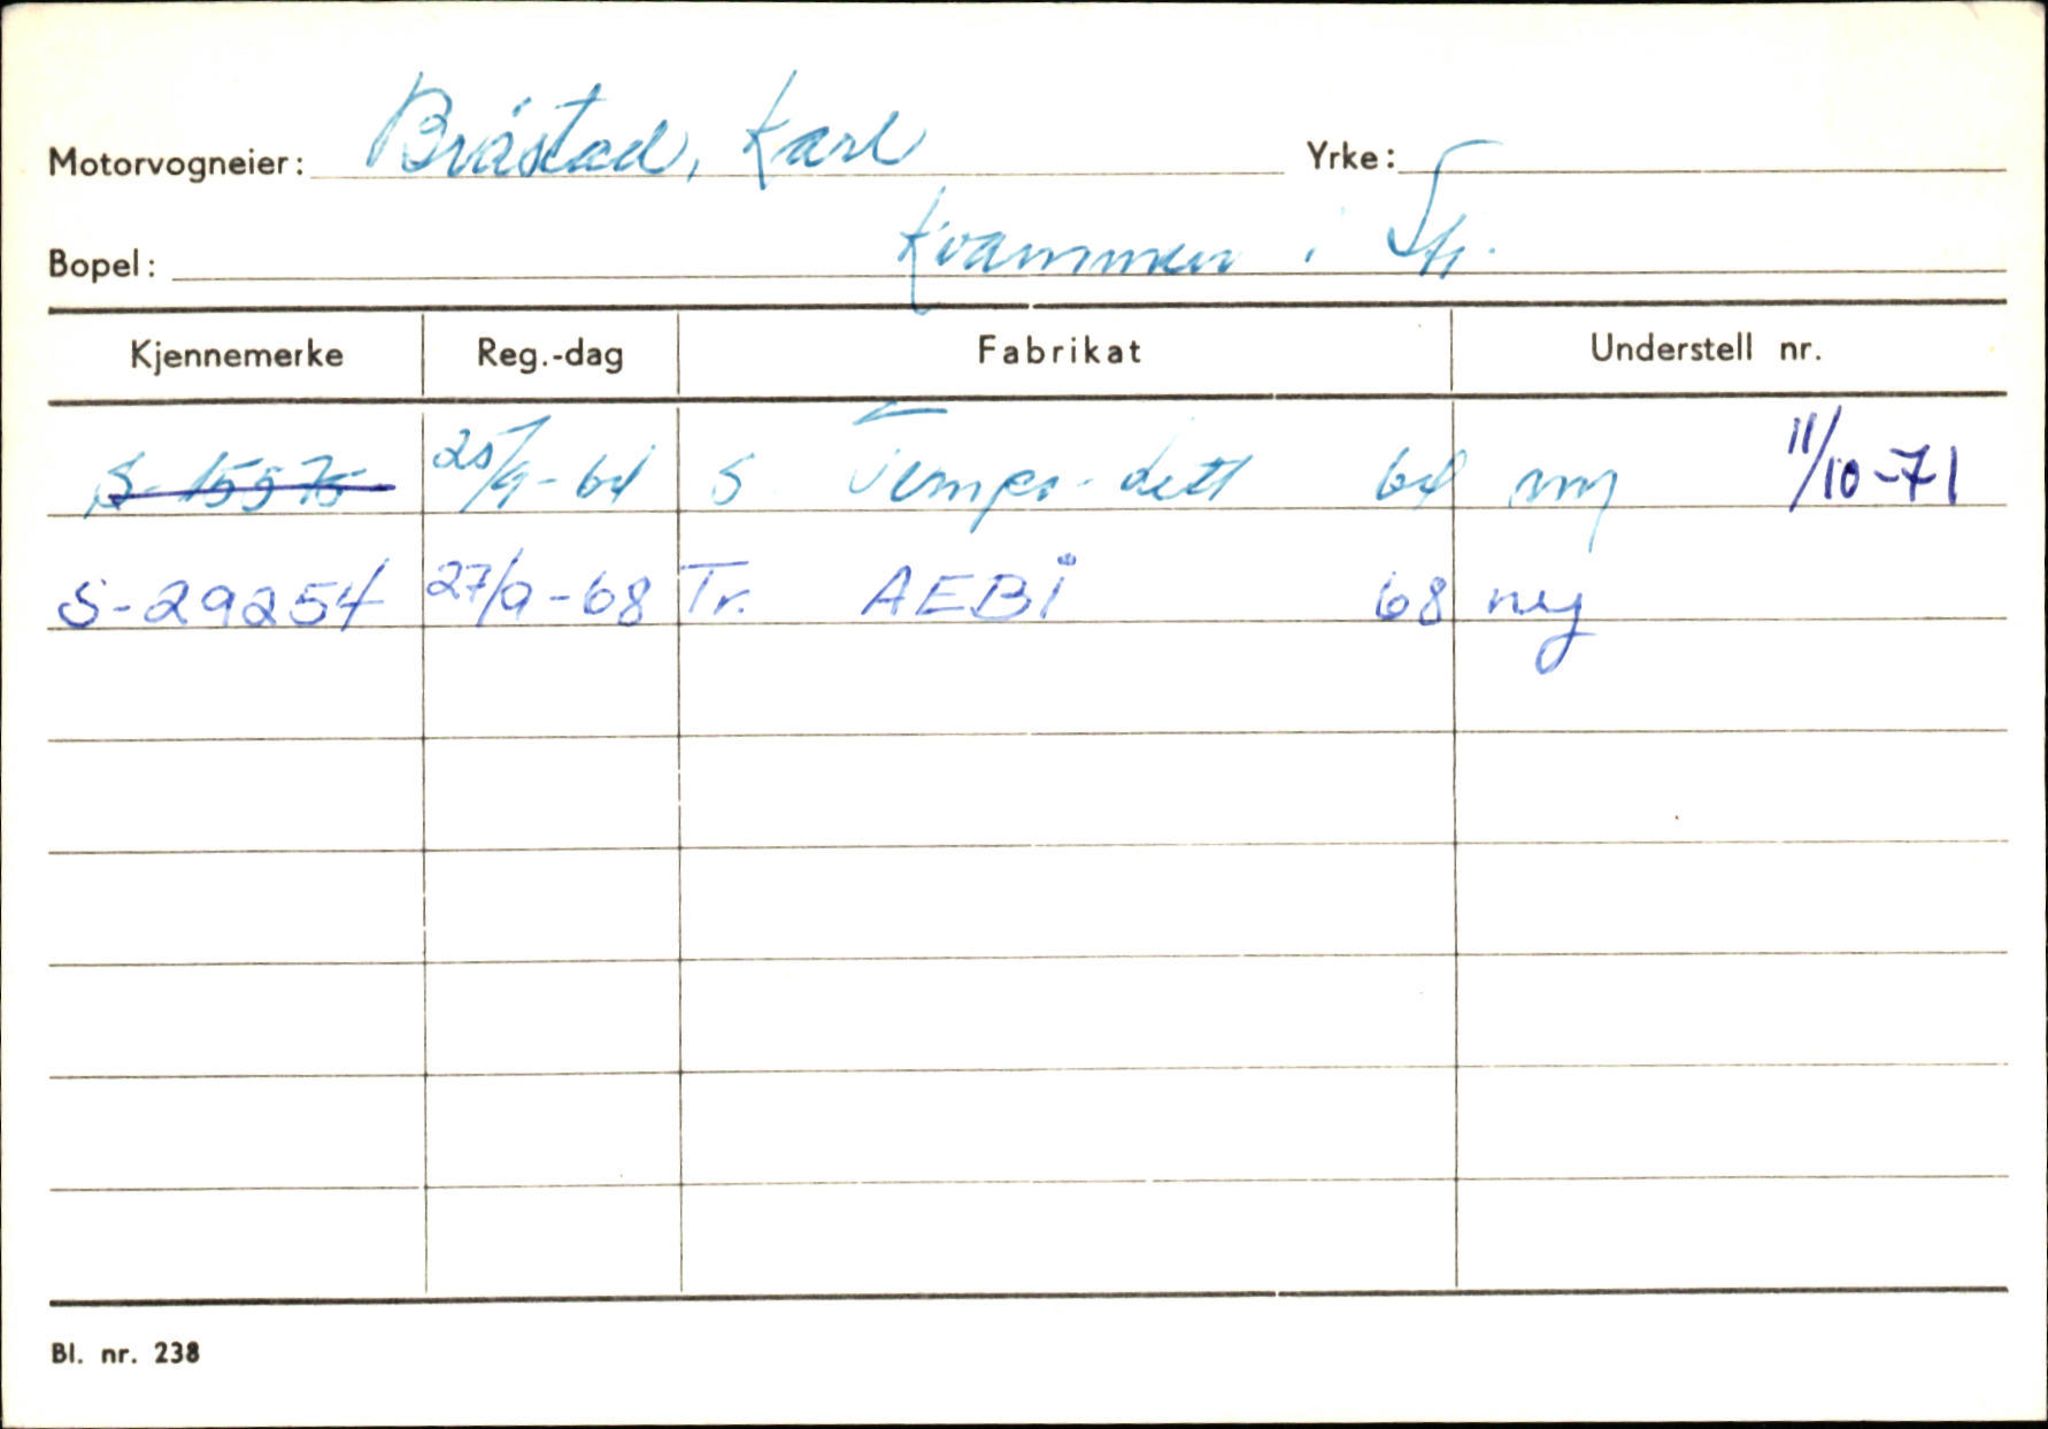 Motorvogneier: Bråstad, Karl Yrke:
Bopel: Kvammen i Sfj.
Kjennemerke Reg.-dag Fabrikat Understell nr.
S-15575 25/9-64 S Tempo-lett 64 ny 11/10-71
S-29254 27/9-68 Tr. AEBI 68 ny
Bl. nr. 238